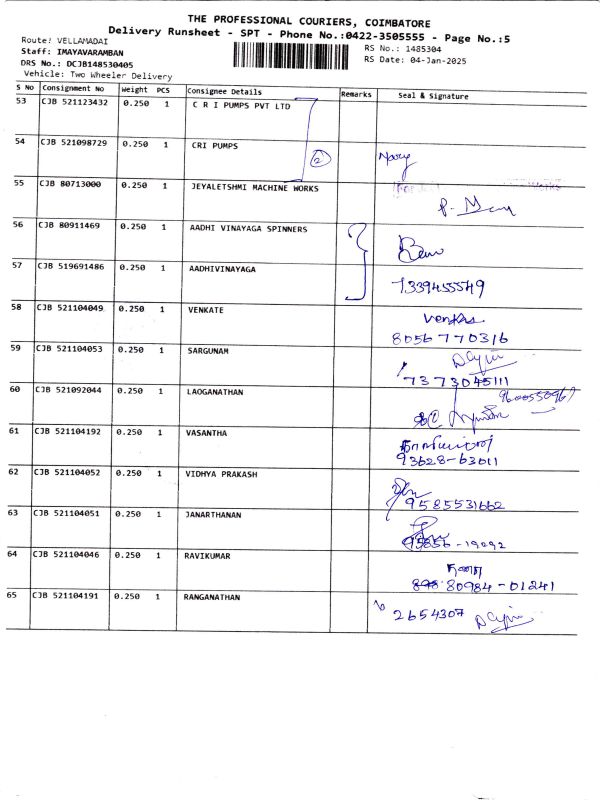 THE PROFESSIONAL COURIERS, COIMBATORE
Delivery Runsheet - SPT - Phone No.:0422-3505555 - Page No.:5
Route: VELLAMADAI
RS No.: 1485304
Staff: IMAYAVARAMBAN
RS Date: 04-Jan-2025
DRS No.: DCJB148530405
Vehicle: Two Wheeler Delivery
S No Consignment No Weight PCS Consignee Details Remarks Seal & Signature
53 CJB 521123432 0.250 1 C R I PUMPS PVT LTD
54 CJB 521098729 0.250 1 CRI PUMPS
2 Mary
55 CJB 80713000 0.250 1 JEYALETSHMI MACHINE WORKS
56 CJB 80911469 0.250 1 AADHI VINAYAGA SPINNERS
57 CJB 519691486 0.250 1 AADHIVINAYAGA
7339455549
58 CJB 521104049 0.250 1 VENKATE
8056770316
59 CJB 521104053 0.250 1 SARGUNAM
7373045111
60 CJB 521092044 0.250 1 LAOGANATHAN
9600550967
61 CJB 521104192 0.250 1 VASANTHA
93628-63011
62 CJB 521104052 0.250 1 VIDHYA PRAKASH
9585531662
63 CJB 521104051 0.250 1 JANARTHANAN
64 CJB 521104046 0.250 1 RAVIKUMAR
80984-01241
65 CJB 521104191 0.250 1 RANGANATHAN
2654307